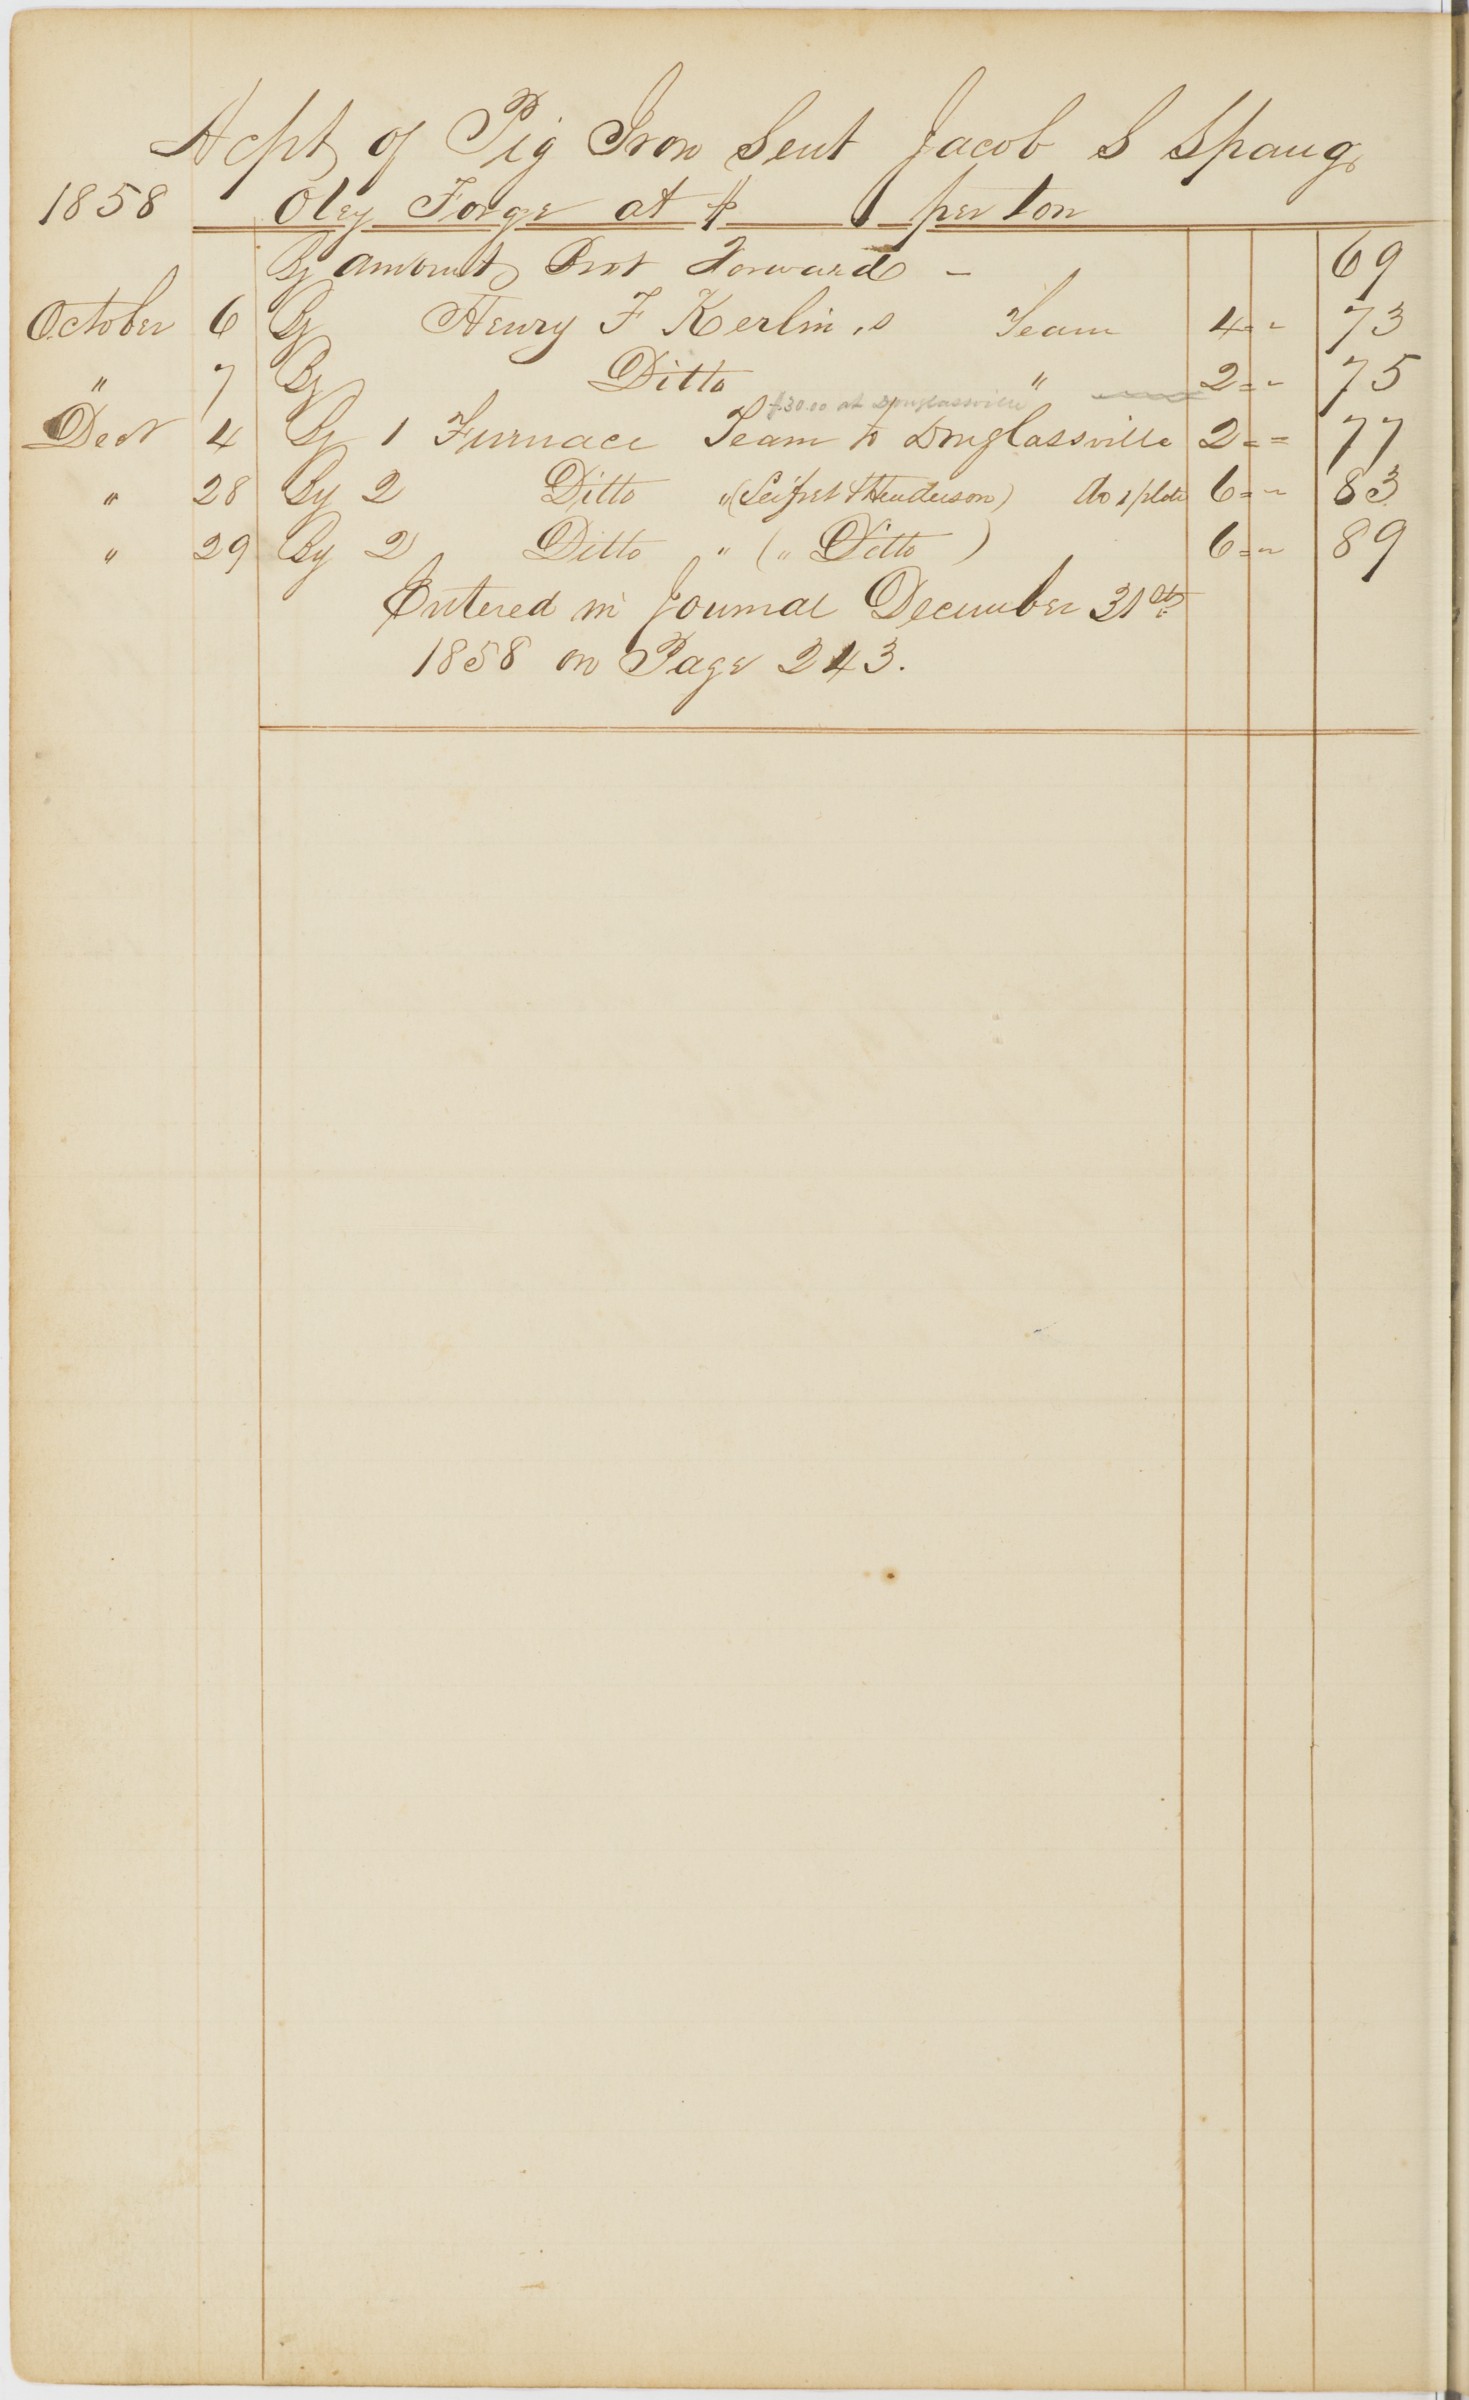 Acpt of Pig Iron Sent Jacob S Spang,
1858 Oley Forge at $ per Ton
By amount Brot Forward - 69
October 6 By Henry F Kerlin,s Team 4 = - 73
" 7 By Ditto " 2 = - 75
$30.00 at Douglassville
Decr 4 By 1 Furnace Team to Douglassville 2 = = 77
" 28 By 2 Ditto " (Seifret & Henderson) do 6 = - 83
" 29 By 2 Ditto " (" Ditto ) 6 = - 89
Entered in Journal December 31st
1858 on Page 243.